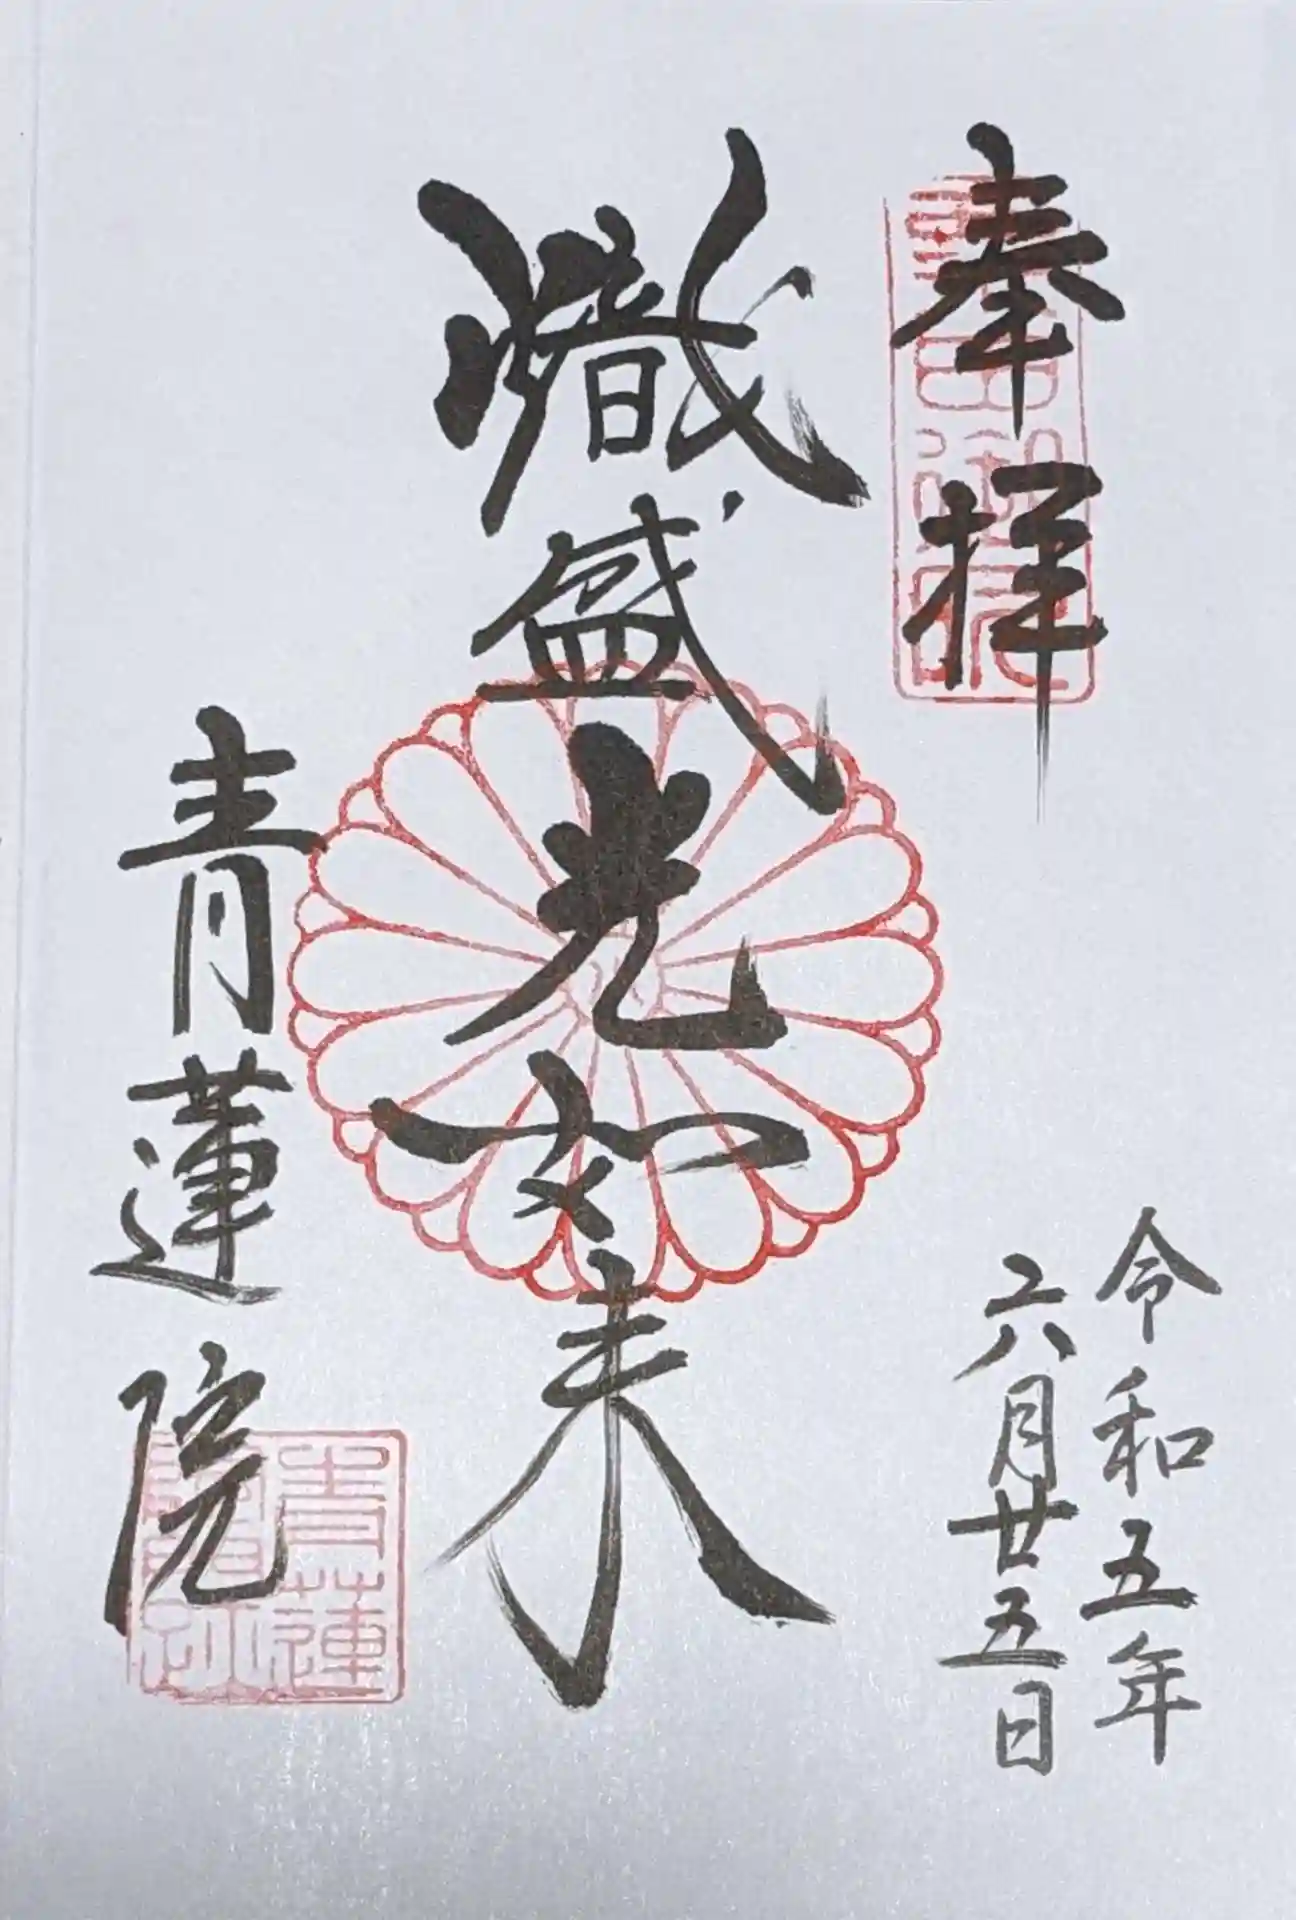 奉拝
令和五年
六月廿五日
熾盛光如来
青蓮院
青蓮